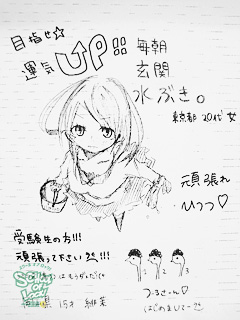 目指せ☆
運気UP!!
毎朝
玄関
水ぶき。
東京都 20代 女
頑張れ
ひっつ♡
受験生の方!!!
頑張って下さい!!!
1 2 3
つるさーん♡
はじめまして
15才